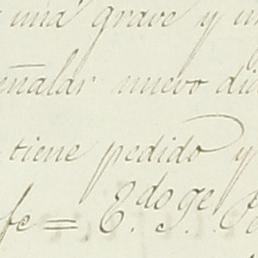 una grave y un
eñalar nuevo di
tiene pedido y
fe = E.do ge